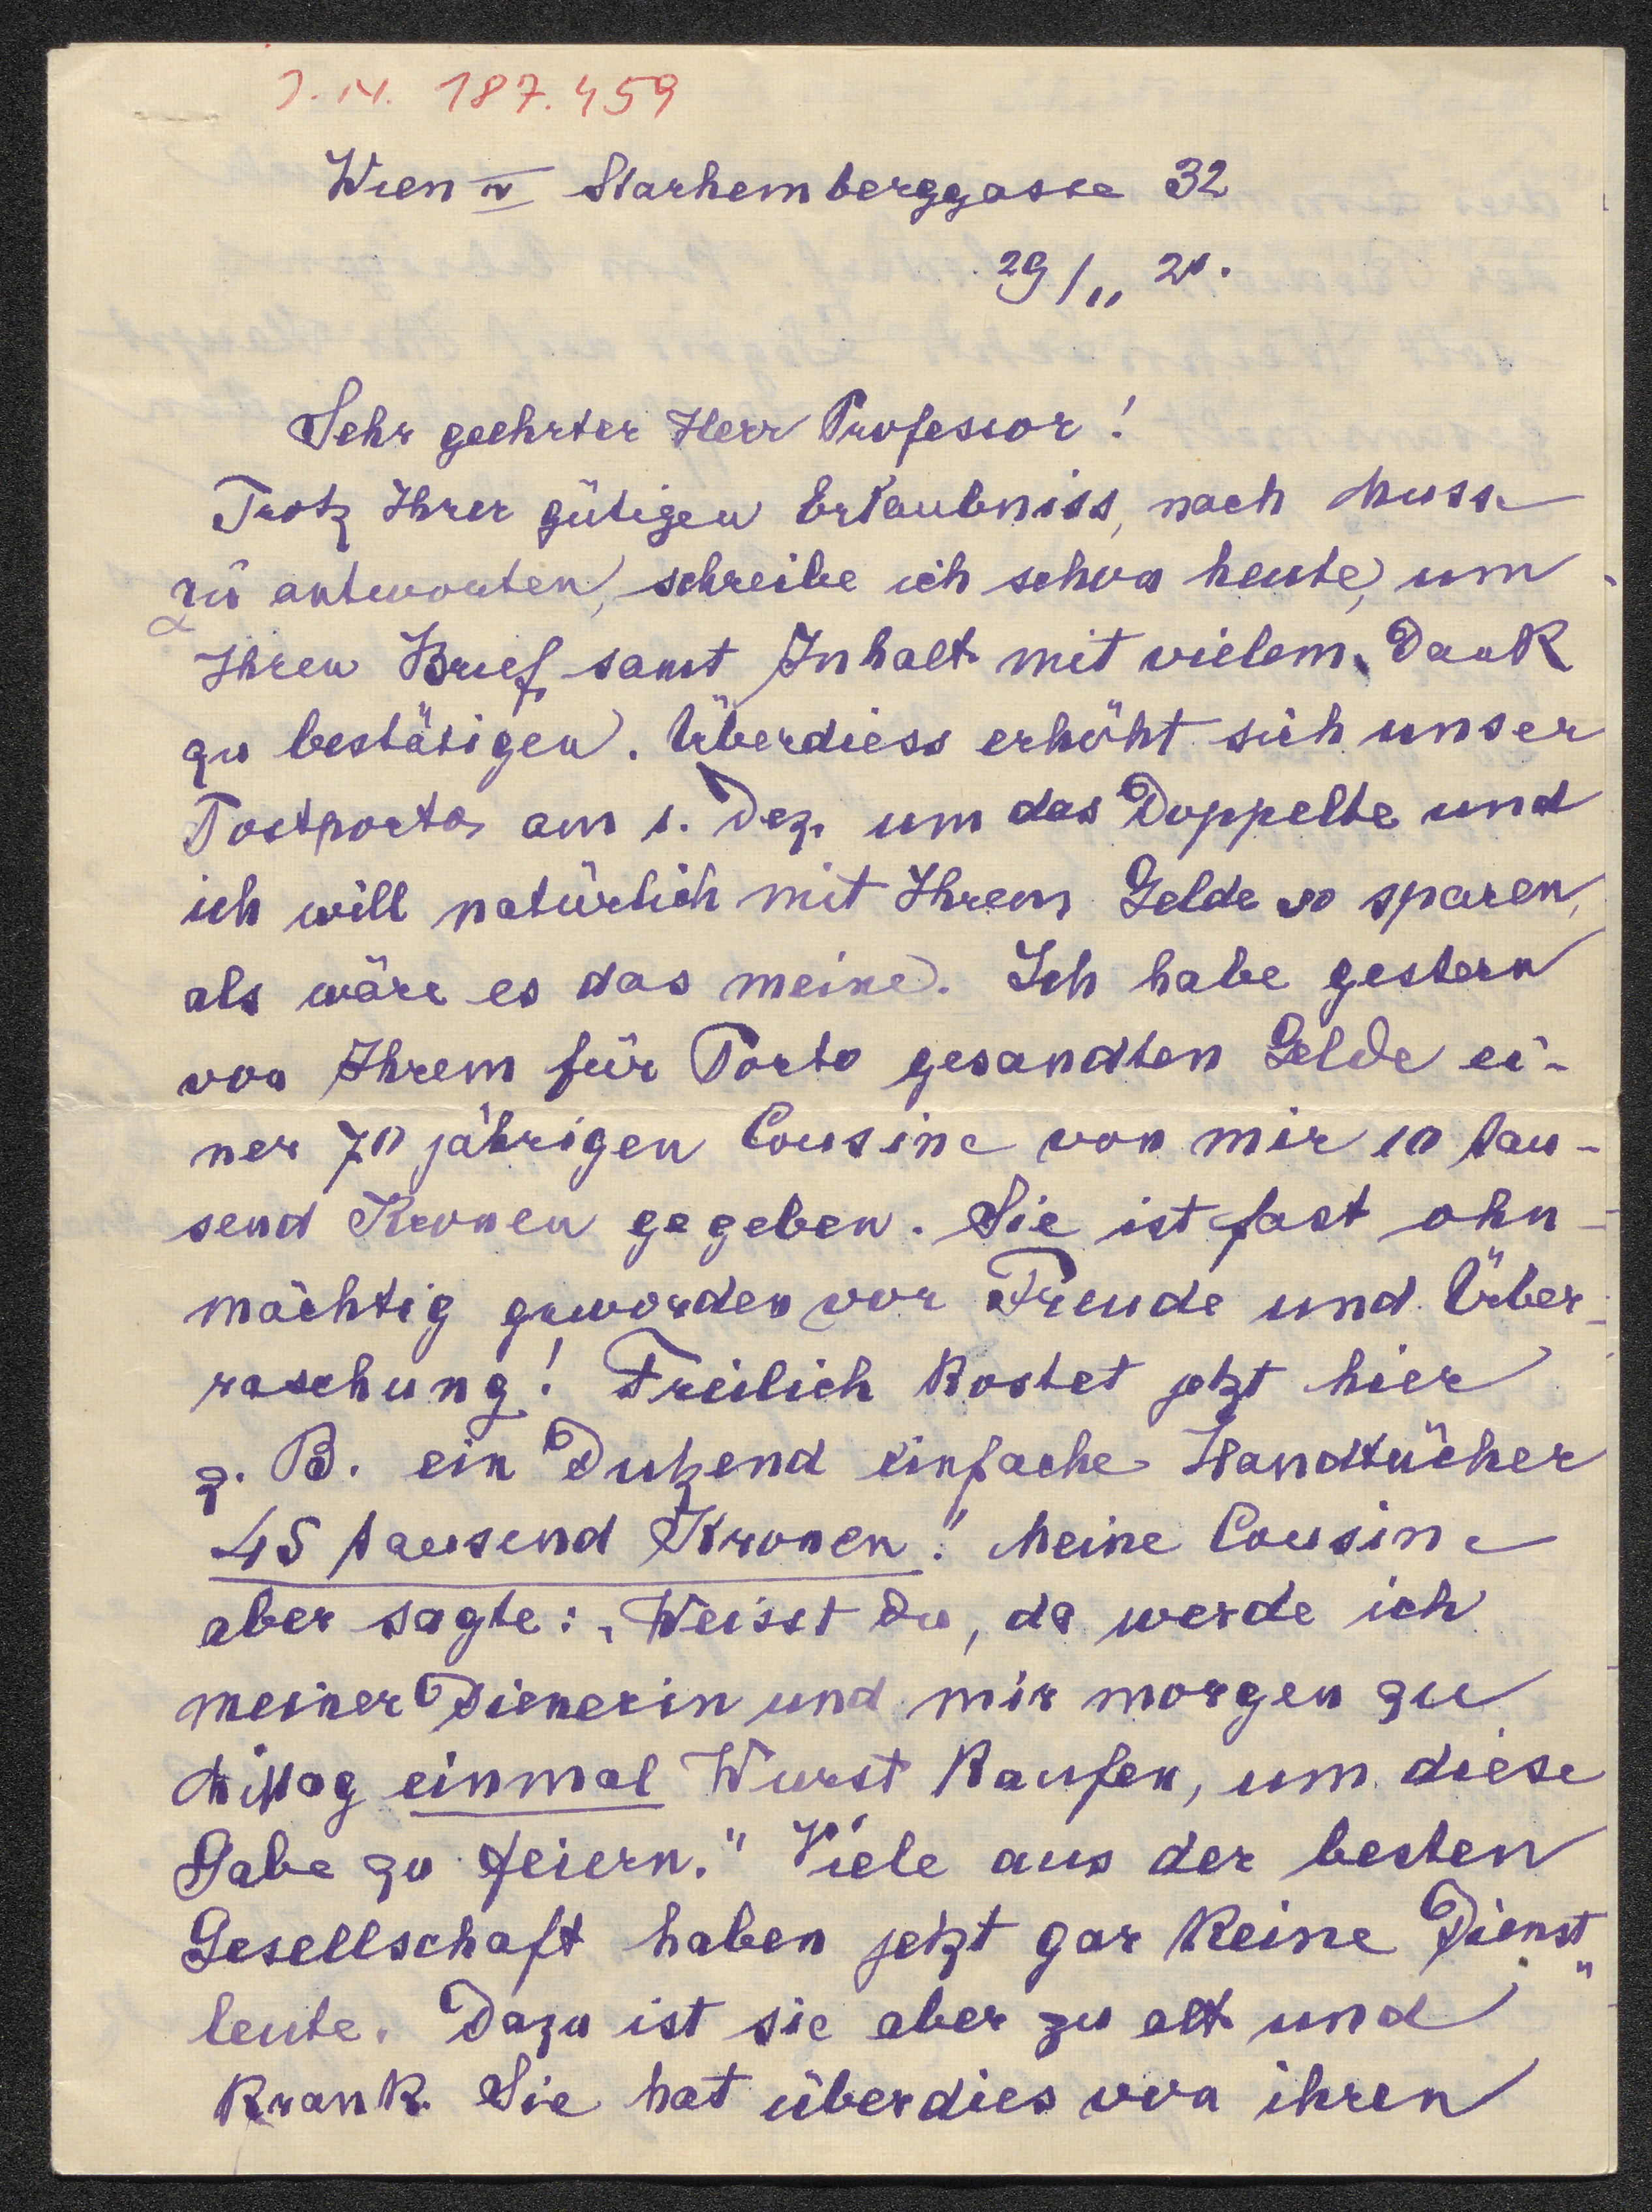 J. N. 187.459
Wien IV Starhemberggasse 32
29/11 21.
Sehr geehrter Herr Professor!
Trotz Ihrer gütigen Erlaubniss, nach Musse
zu antworten, schreibe ich schon heute, um
Ihren Brief samt Inhalt mit vielem Dank
zu bestätigen. Überdiess erhöht sich unser
Postporto am 1. Dez. um das Doppelte und
ich will natürlich mit Ihrem Gelde so sparen,
als wäre es das meine. Ich habe gestern
von Ihrem für Porto gesandten Gelde ei-
ner 70 jährigen Cousine von mir 10 tau-
send Kronen gegeben. Sie ist fast ohn-
mächtig geworden vor Freude und Über-
raschung! Freilich kostet jetzt hier
z. B. ein Dutzend einfache Handtücher
45 tausend Kronen! Meine Cousine
aber sagte: „Weisst Du, da werde ich
meiner Dienerin und mir morgen zu
Mittag einmal Wurst kaufen, um diese
Gabe zu feiern." Viele aus der besten
Gesellschaft haben jetzt gar keine Dienst"
leute. Dazu ist sie aber zu alt und
krank. Sie hat überdies von ihren